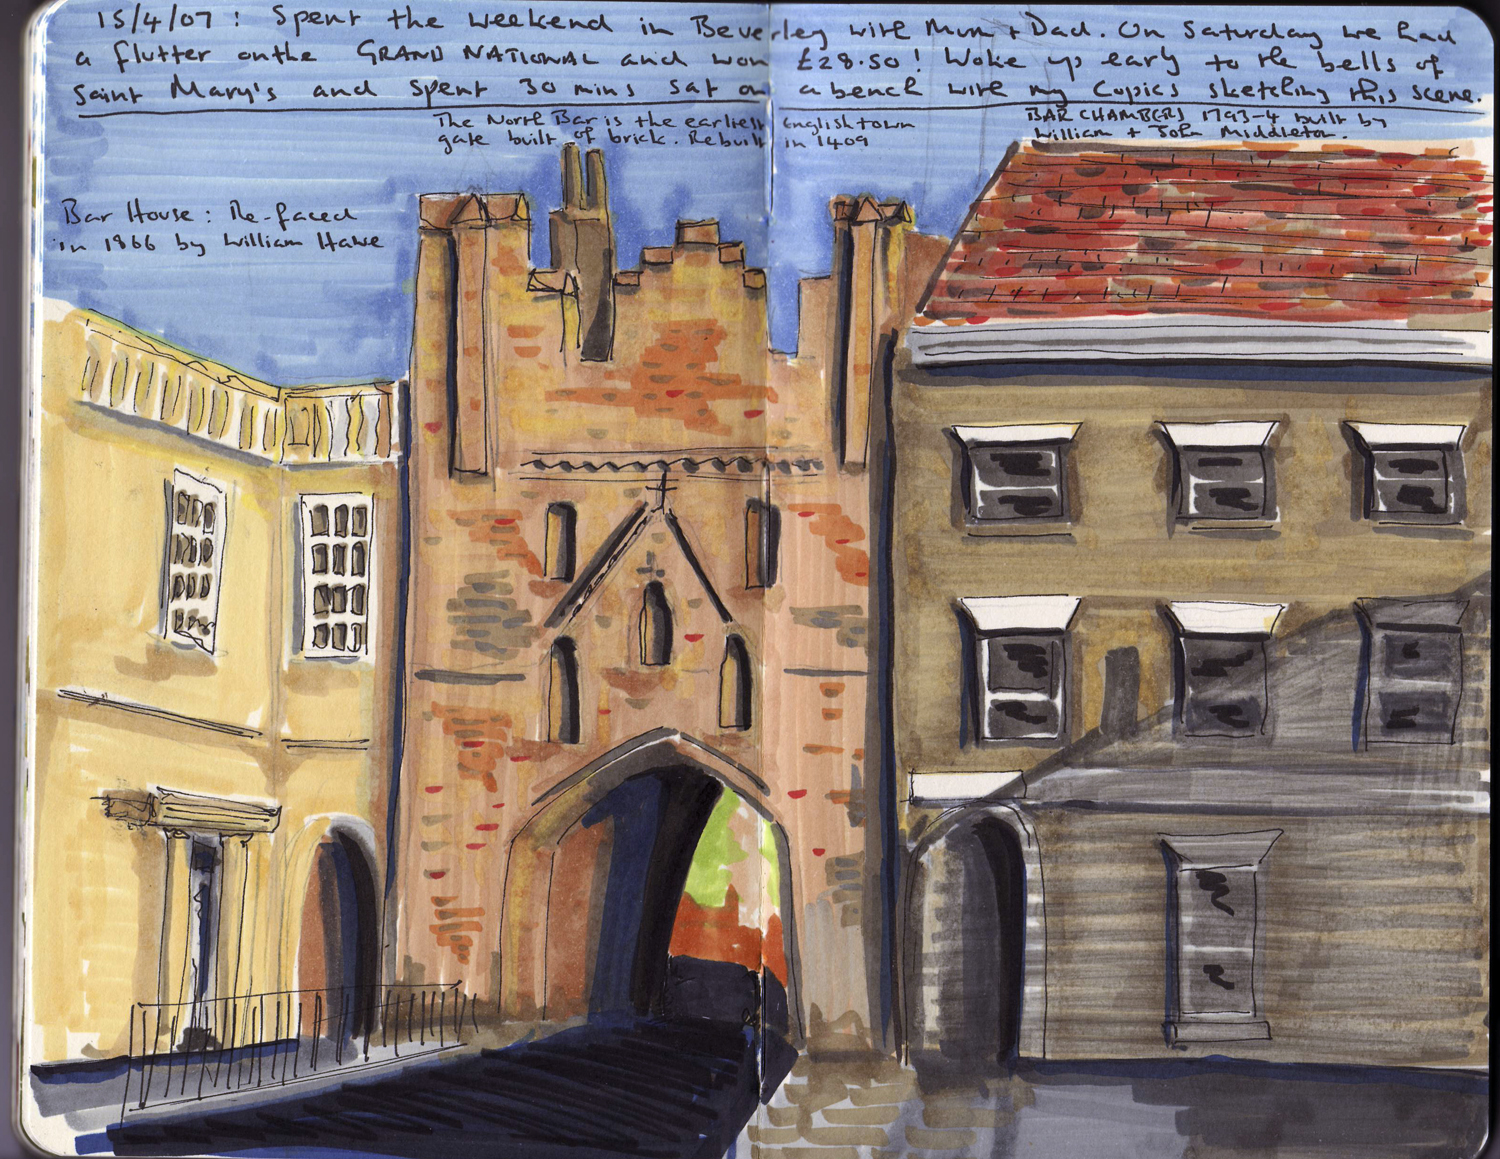 15/4/07: Spent the weekend in Beverley with Mum + Dad. On Saturday we had
a flutter on the GRAND NATIONAL and won £28.50! Woke up early to the bells of
Saint Mary's and spent 30 mins sat on a bench with my Copics sketching this scene.
The North Bar is the earliest English town
gate built of brick. Rebuilt in 1409
BAR CHAMBERS 1793-4 built by
William + John Middleton.
Bar House: Re-faced
in 1866 by William Hawe